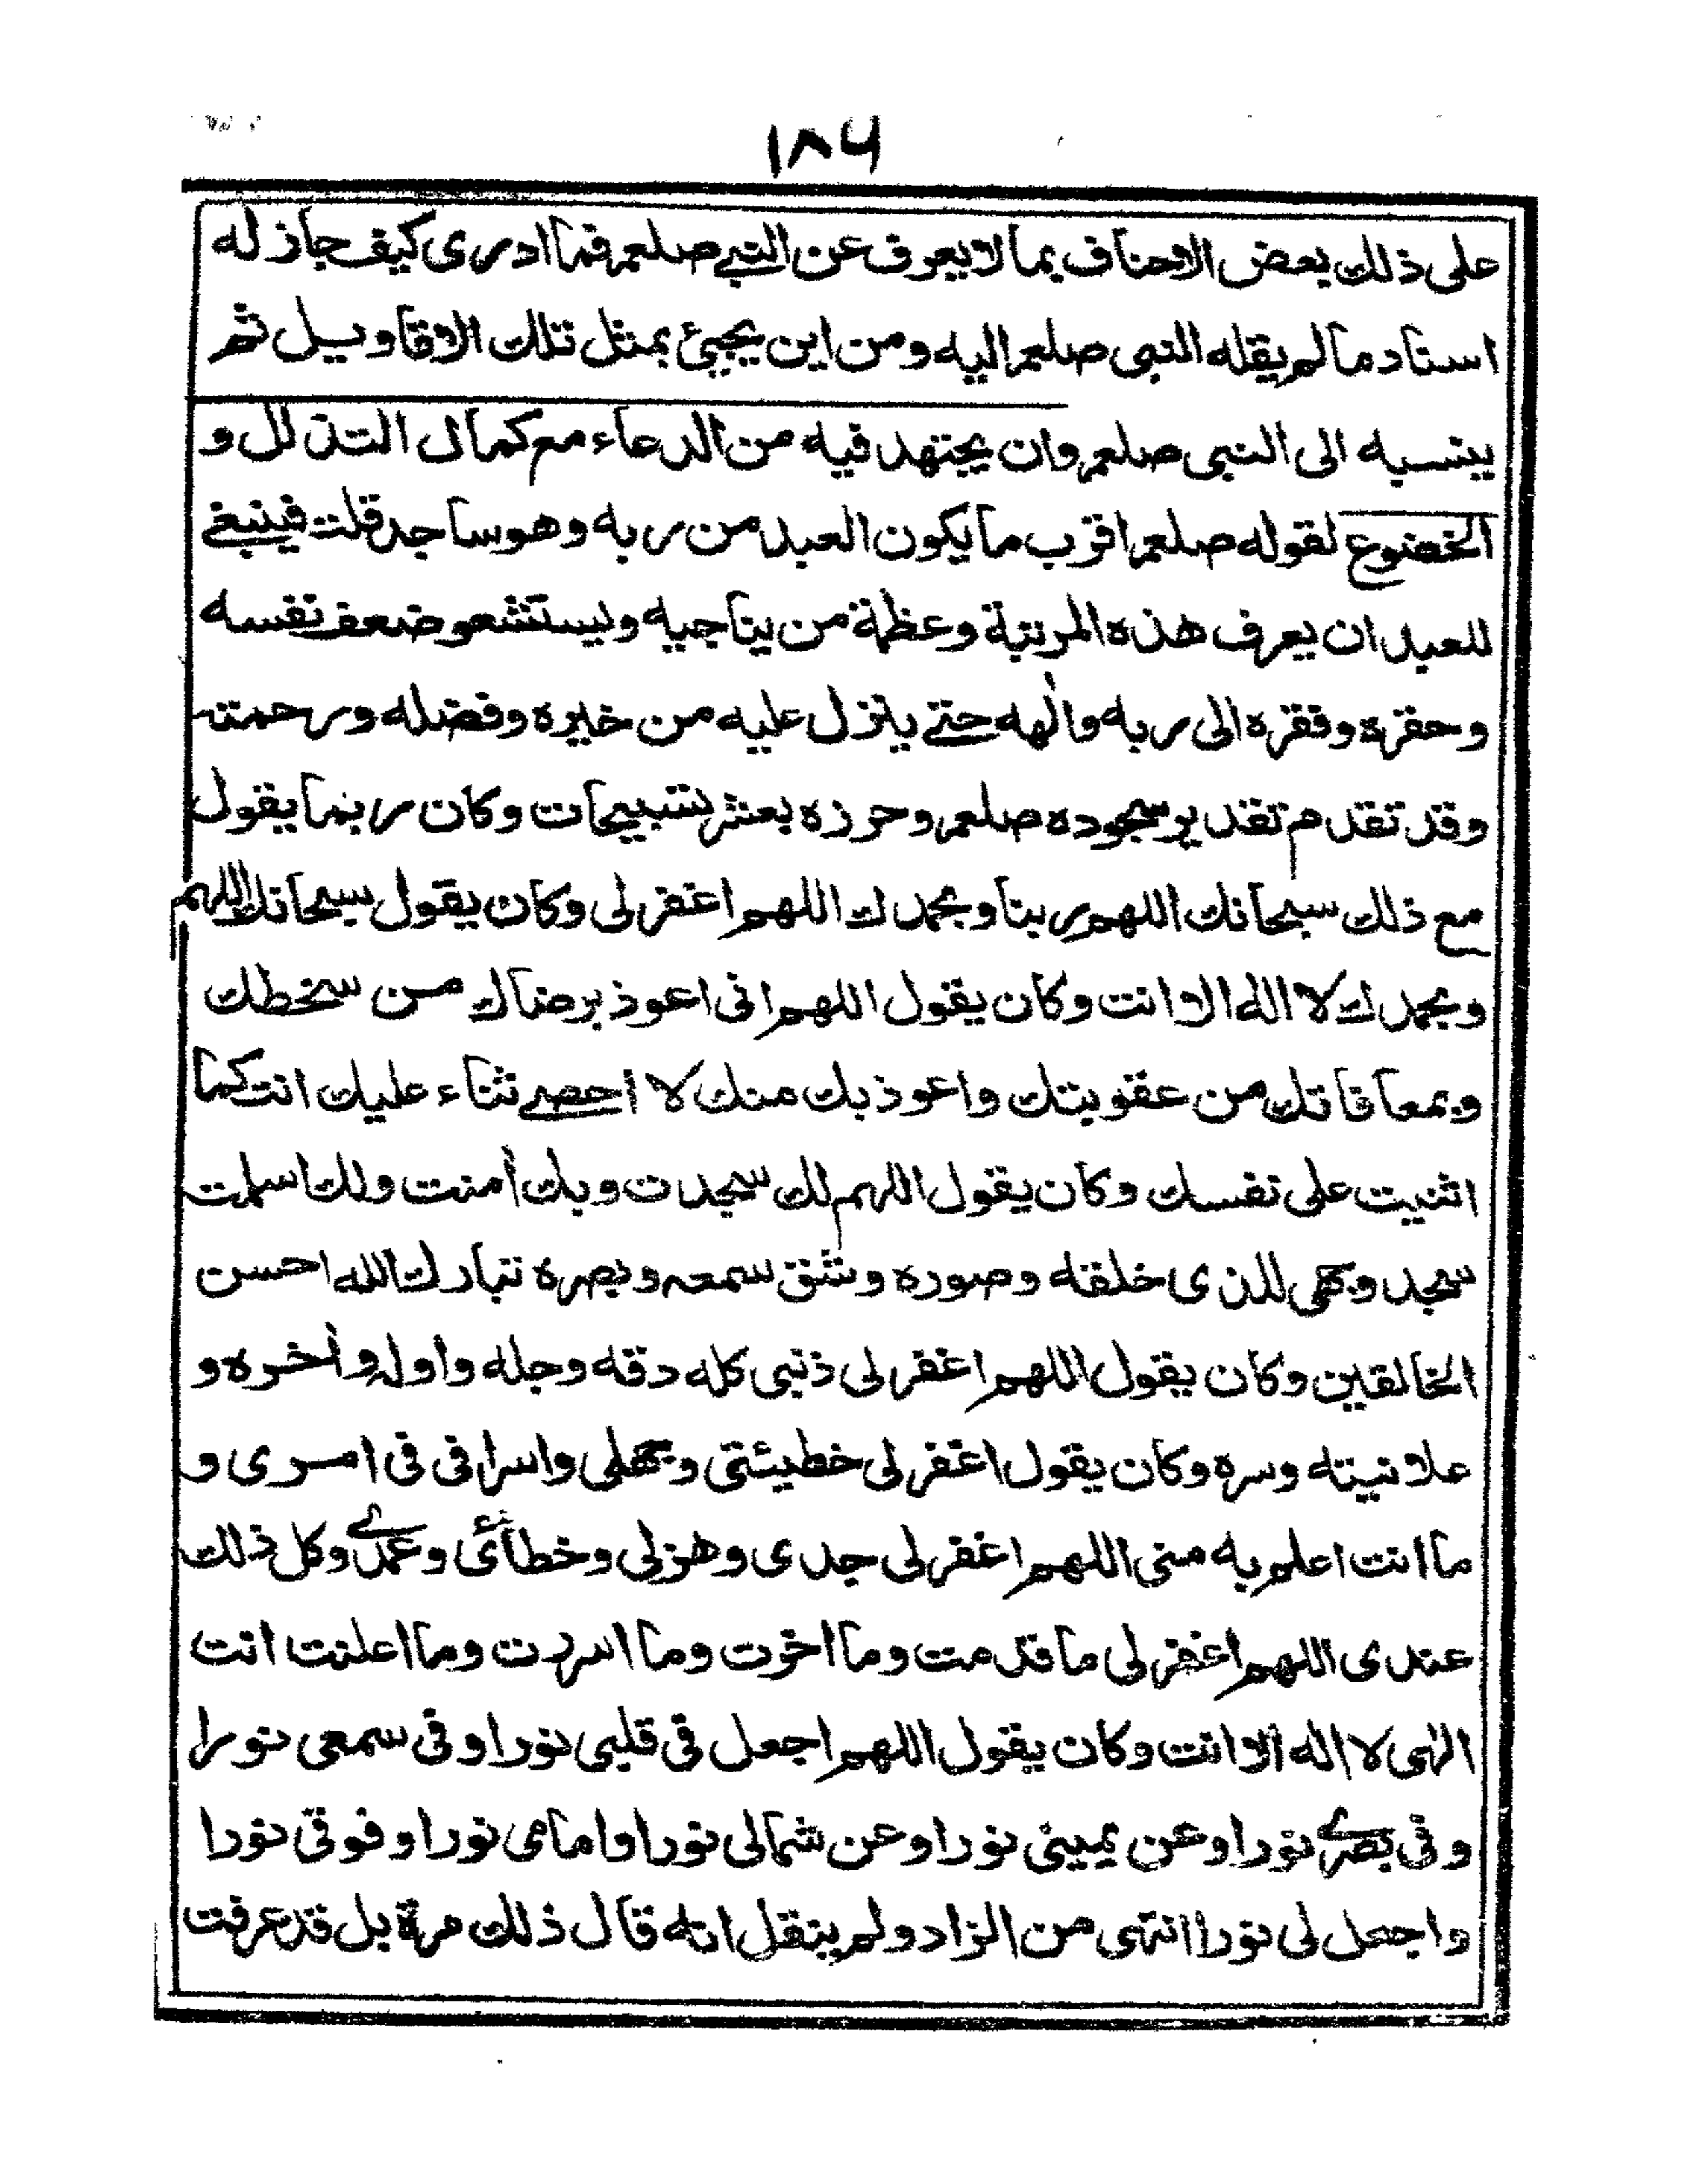 ١٨٦
على ذلك بعض الاحناف بما لا يعرف عن النبي صلعم فما ادرى كيف جاز له
اسناد ما لم يقله النبى صلعم اليه ومن اين يجيئ بمثل تلك الاقاويل ثم
ينسبه الى النبى صلعم وان يجتهد فيه من الدعاء مع كمال التذلل و
الخضوع لقوله صلعم اقرب ما يكون العبد من ربه وهو ساجد قلت فينبغي
للعبد ان يعرف هذه المرتبة وعظمة من يناجيه وليستشعر ضعف نفسه
وحقره وفقره الى ربه والهه حتے ينزل عليه من خيره وفضله ورحمته
وقد تقدم تقدير سجوده صلعم وحرزه بعشر تسبيحات وكان ربنما يقول
مع ذلك سبحانك اللهم ربنا وبحمدك اللهم اغفر لى وكان يقول سبحانك اللهم
وبحمدك لا اله الا انت وكان يقول اللهم انى اعوذ برضاك من سخطك
وبمعافاتك من عقوبتك واعوذ بك منك لا احصے ثناء عليك انت كما
اثنيت على نفسك وكان يقول اللهم لك سجدت وبك أمنت ولك اسلمت
سجد وجهى للذى خلقه وصوره وشق سمعه وبصره تبارك الله احسن
الخالقين وكان يقول اللهم اغفر لى ذنبى كله دقه وجله واوله وأخره و
علانيته وسره وكان يقول اغفر لى خطيئتى وجهلى واسرافى فى امرى و
ما انت اعلم به منى اللهم اغفر لى جدى وهزلى وخطأئى وعمدے وكل ذلك
عندى اللهم اغفر لى ما قدمت وما اخرت وما اسررت وما اعلنت انت
الهى لا اله الا انت وكان يقول اللهم اجعل فى قلبى نورا وفى سمعى نورا
وفى بصرے نورا وعن يمينى نورا وعن شمالى نورا وامامى نورا وفوقى نورا
واجعل لى نورا انتهى من الزاد ولم ينقل انه قال ذلك مرة بل قد عرفت